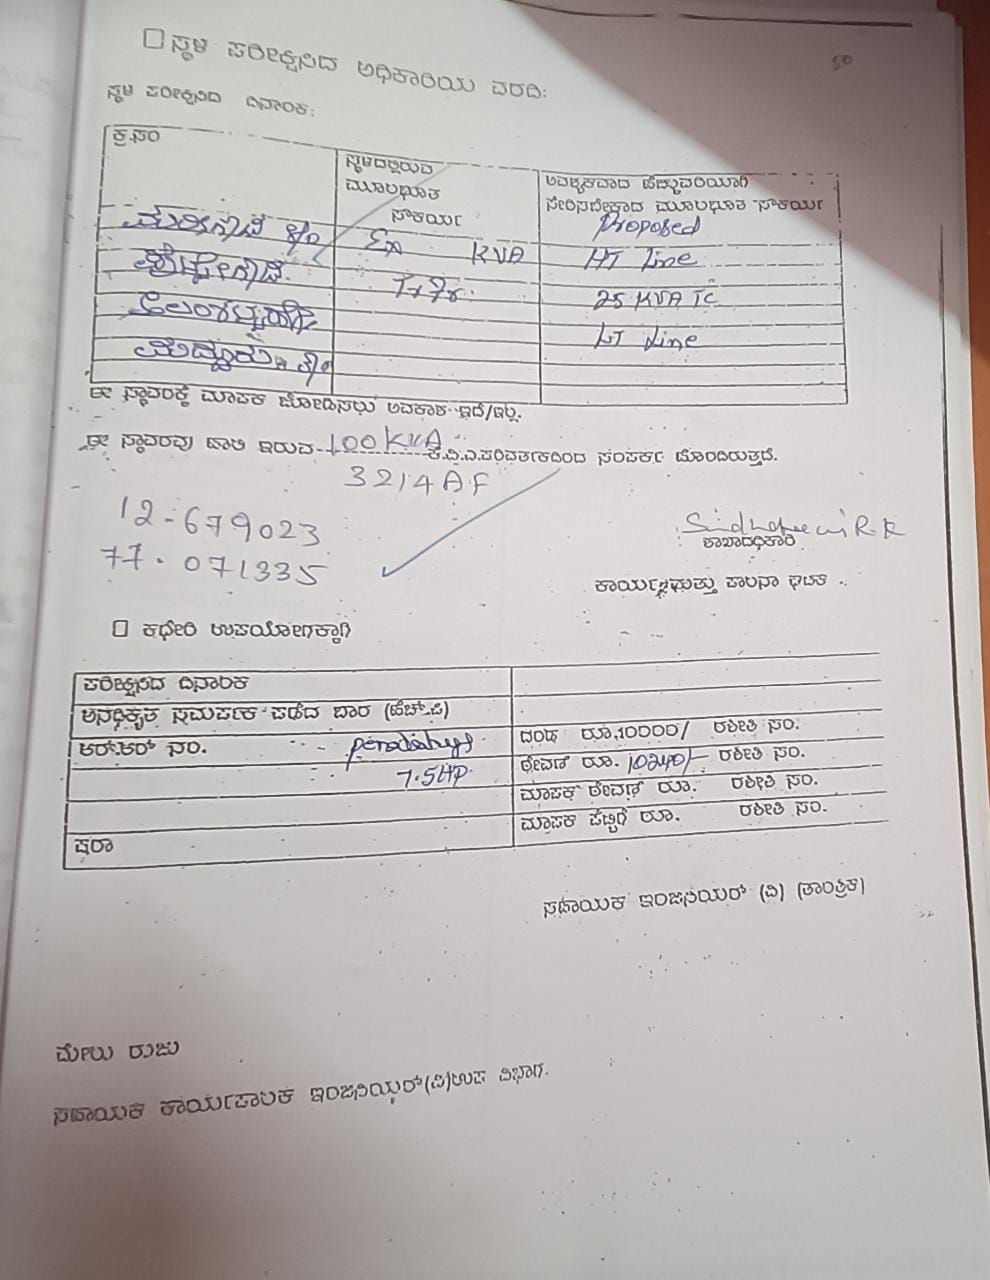 ಸ್ಥಳ ಪರೀಕ್ಷಿಸಿದ ಅಧಿಕಾರಿಯ ವರದಿ:
ಸ್ಥಳ ಪರೀಕ್ಷಿಸಿದ ದಿನಾಂಕ:
ಕ್ರ.ಸಂ
ಸ್ಥಳದಲ್ಲಿರುವ ಮೂಲಭೂತ ಸೌಕರ್ಯ
ಅವಶ್ಯಕವಾದ ಹೆಚ್ಚುವರಿಯಾಗಿ ಸೇರಿಸಬೇಕಾದ ಮೂಲಭೂತ ಸೌಕರ್ಯ
Proposed
KVA
HT Line
25 KVA TC
LT Line
ಈ ಸ್ಥಾವರಕ್ಕೆ ಮಾಪಕ ಜೋಡಿಸಲು ಅವಕಾಶ ಇದೆ/ಇಲ್ಲ.
ಈ ಸ್ಥಾವರವು ಹಾಲಿ ಇರುವ 100 KVA ಕೆ.ವಿ.ಎ.ಪರಿವರ್ತಕದಿಂದ ಸಂಪರ್ಕ ಹೊಂದಿರುತ್ತದೆ.
3214AF
12-679023
77.071335
ಶಾಖಾಧಿಕಾರಿ
ಕಾರ್ಯ ಮತ್ತು ಪಾಲನಾ ಘಟಕ
ಕಛೇರಿ ಉಪಯೋಗಕ್ಕಾಗಿ
ಪರೀಕ್ಷಿಸಿದ ದಿನಾಂಕ
ಅನಧಿಕೃತ ಸಂಪರ್ಕ ಪಡೆದ ಬಾರ (ಹೆಚ್.ಪಿ)
ಆರ್.ಆರ್ ನಂ.
ದಂಡ ರೂ.10000/ ರಶೀತಿ ಸಂ.
7.5HP
ಠೇವಣಿ ರೂ. ರಶೀತಿ ಸಂ.
ಮಾಪಕ ಠೇವಣಿ ರೂ. ರಶೀತಿ ಸಂ.
ಮಾಪಕ ಪೆಟ್ಟಿಗೆ ರೂ. ರಶೀತಿ ಸಂ.
ಷರಾ
ಸಹಾಯಕ ಇಂಜಿನಿಯರ್ (ವಿ) (ತಾಂತ್ರಿಕ)
ಮೇಲು ರುಜು
ಸಹಾಯಕ ಕಾರ್ಯಪಾಲಕ ಇಂಜಿನಿಯರ್(ವಿ)ಉಪ ವಿಭಾಗ.